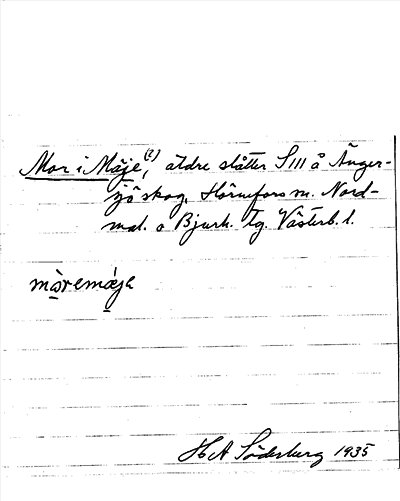 Mor i Mäje,(?) äldre slåtter S III å Ånger-
sjö skog, Hörnefors sn. Nord-
mal. o Bjurh. tg. Västerb. l.
mòremǽjɐ
H A Söderberg 1935